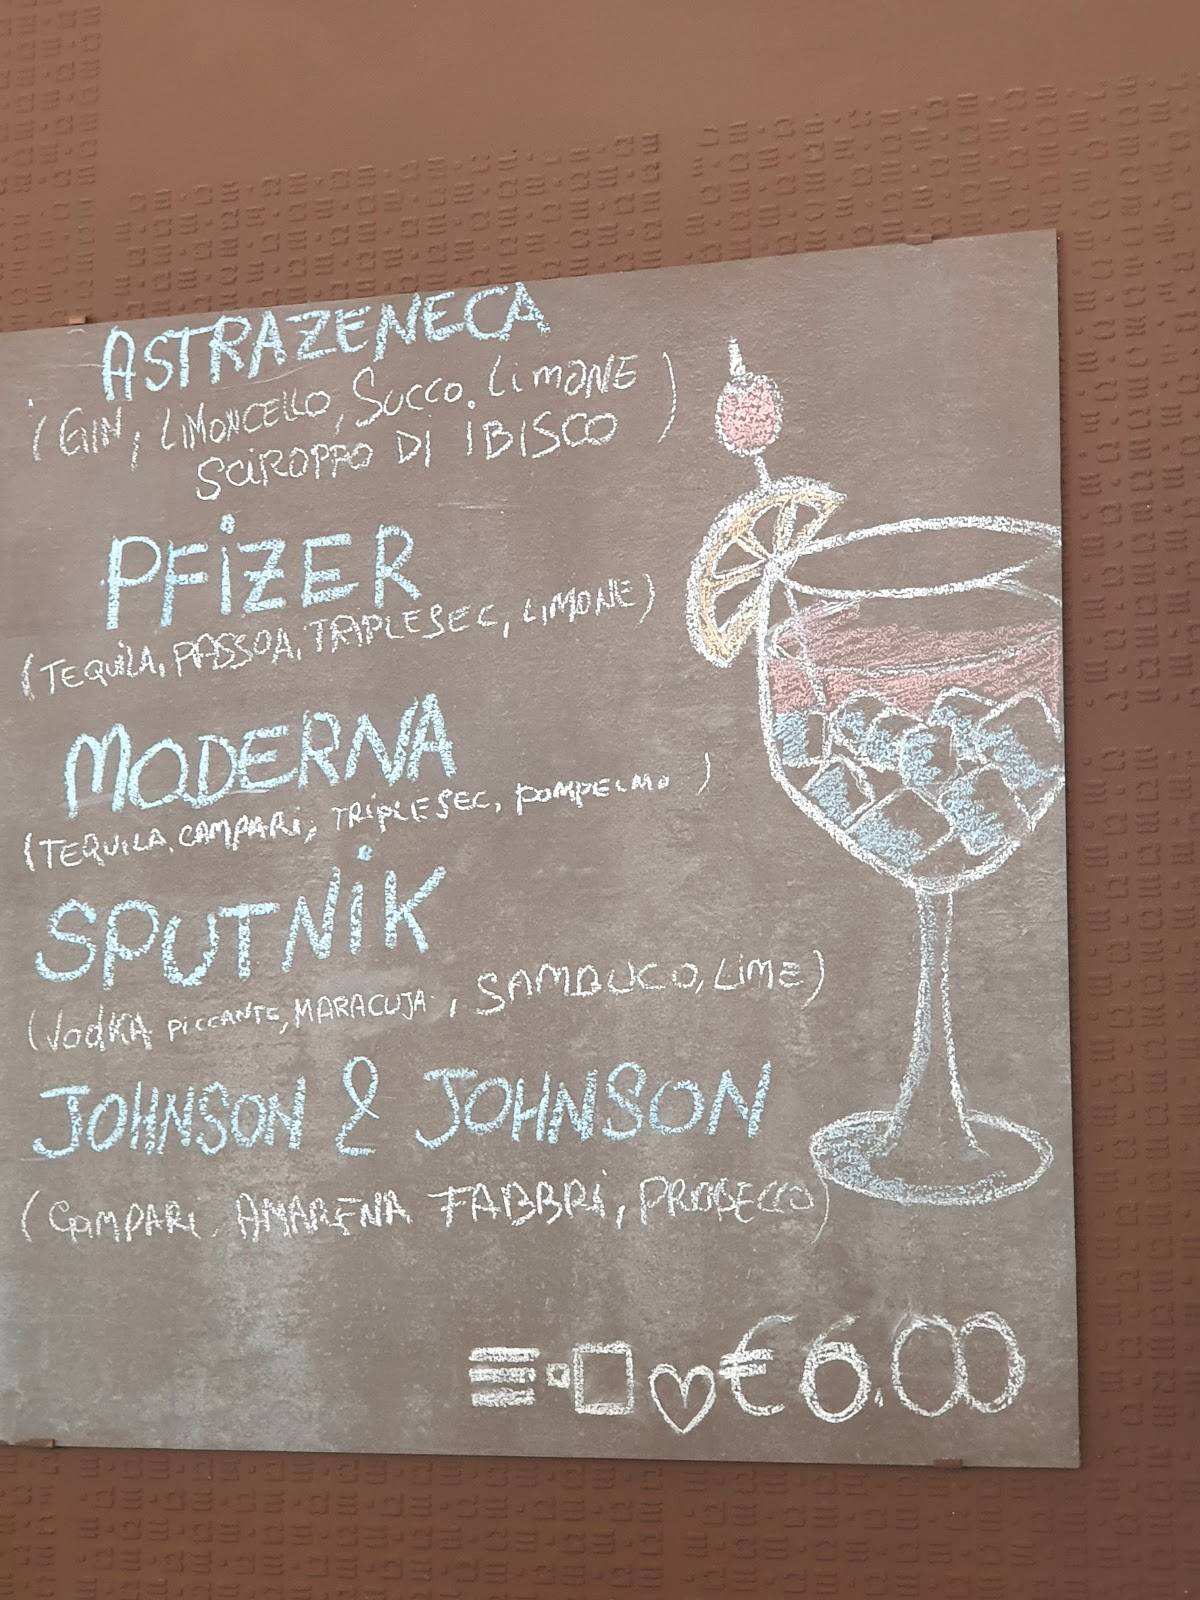 ASTRAZENECA
(GIN, LIMONCELLO, SUCCO. LIMONE
SCIROPPO DI IBISCO)
PFIZER
(TEQUILA, PASSOA, TRIPLESEC, LIMONE)
MODERNA
(TEQUILA, CAMPARI, TRIPLESEC, POMPELMO)
SPUTNIK
(VODKA PICCANTE, MARACUJA, SAMBUCO, LIME)
JOHNSON & JOHNSON
(CAMPARI, AMARENA FABBRI, PROSECCO)
€6.00